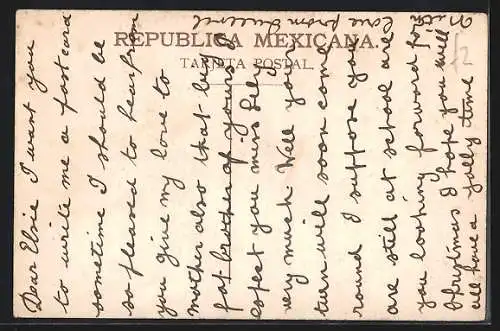 REPUBLICA MEXICANA.
TARJETA POSTAL.
Dear Elsie I want you
to write me a postcard
sometime I should be
so pleased to hear from
you give my love to
mother also that big
fat brother of yours I
expect you miss
very much Well your
turn will soon come
round I suppose you
are still at school are
you looking forward for
Christmas I hope you will
all have a jolly time
With
love from